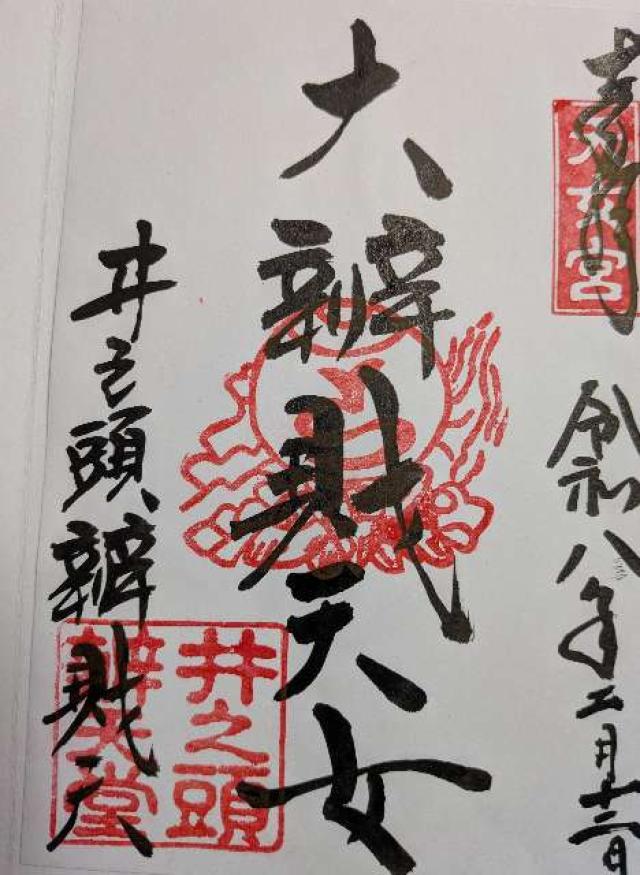 奉拝
令和八年二月十二日
大辨財天女
井之頭辨財天
井之頭
辨天堂